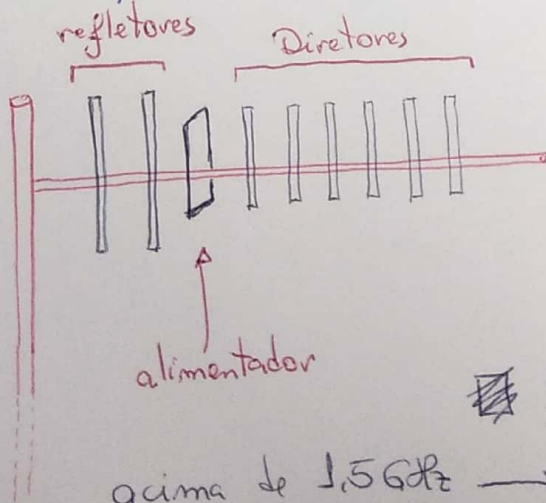 refletores
Diretores
alimentador
acima de 1,5 GHz